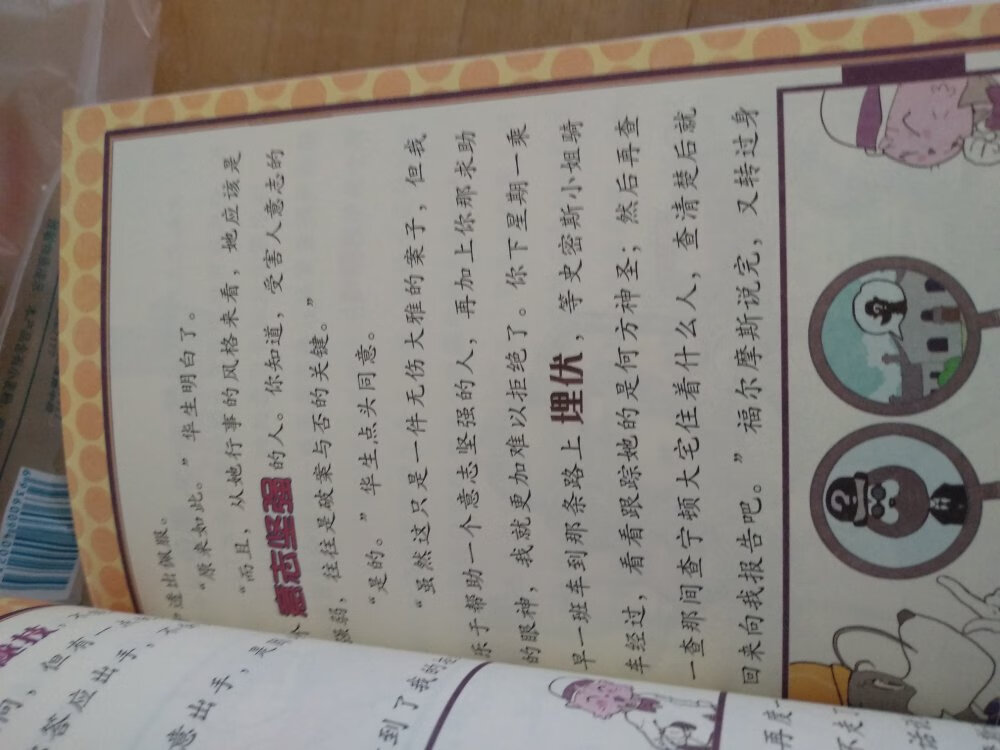 透出佩服。
“原来如此。”华生明白了。
“而且，从她行事的风格来看，她应该是
意志坚强的人。你知道，受害人意志的
强弱，往往是破案与否的关键。”
“是的。”华生点头同意。
“虽然这只是一件无伤大雅的案子，但我
乐于帮助一个意志坚强的人，再加上你那求助
的眼神，我就更加难以拒绝了。你下星期一乘
早一班车到那条路上埋伏，等史密斯小姐骑
车经过，看看跟踪她的是何方神圣；然后再查
一查那间查宁顿大宅住着什么人，查清楚后就
回来向我报告吧。”福尔摩斯说完，又转过身
?
?
，但有一
答应出手，
意出手，
到了我的
再度